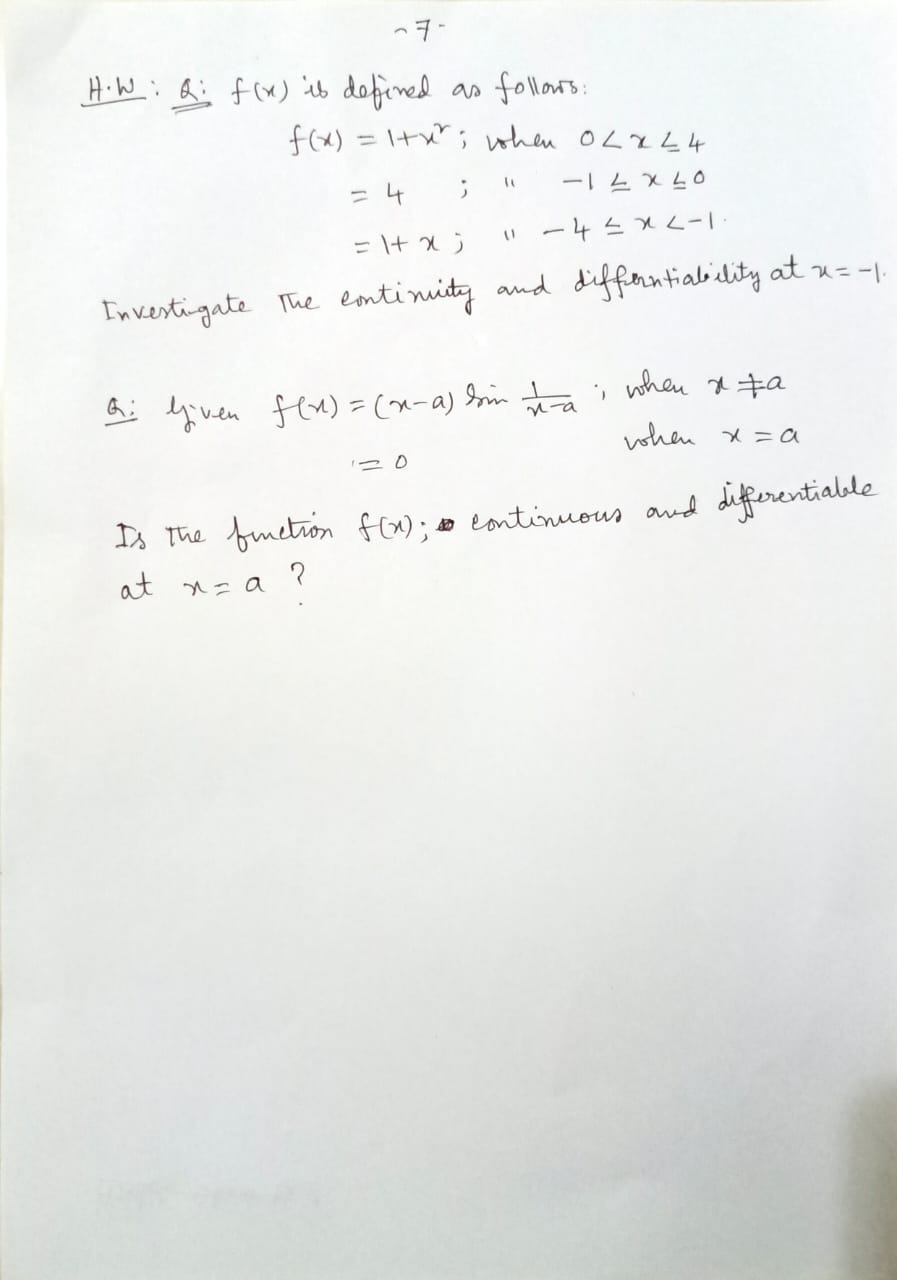 -7-
H.W: Q: f(x) is defined as follows:
f(x) = 1+x²; when 0<x≤4
= 4 ; " -1≤x≤0
= 1+x; " -4≤x<-1.
Investigate the continuity and differntiability at x=-1.
Q: Given f(x) = (x-a) sin 1/(x-a) ; when x≠a
= 0 when x=a
Is the function f(x); continuous and differentiable
at x=a ?